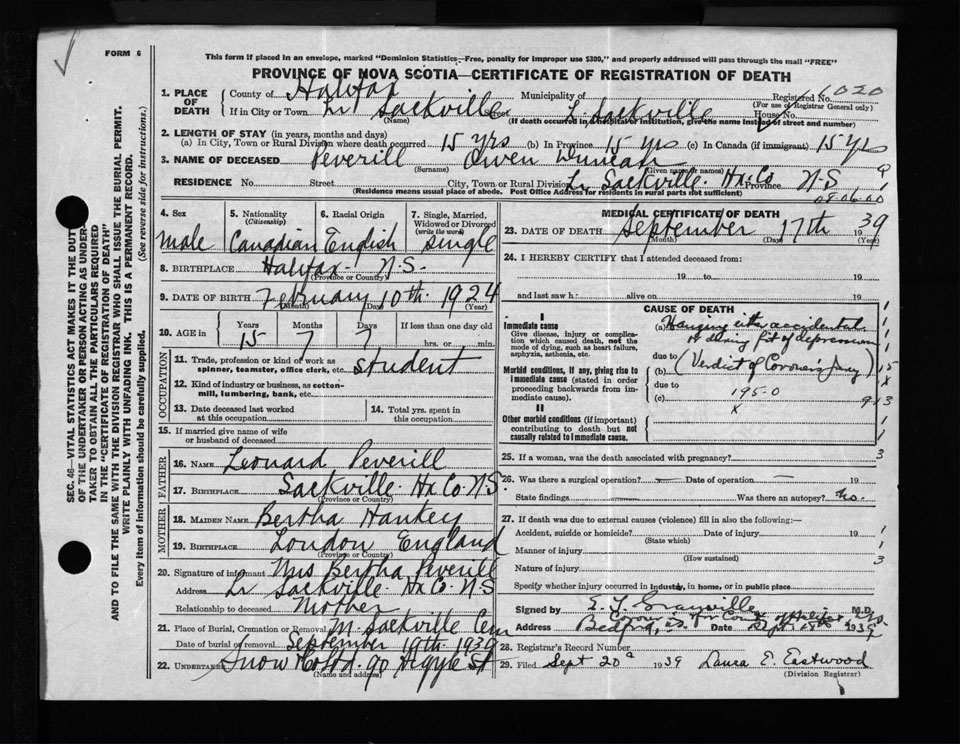 FORM 6
This form if placed in an envelope, marked "Dominion Statistics—Free, penalty for improper use $300," and properly addressed will pass through the mail "FREE"
PROVINCE OF NOVA SCOTIA—CERTIFICATE OF REGISTRATION OF DEATH
1. PLACE OF DEATH
County of Halifax Municipality of Registered No. 6020
(For use of Registrar General only)
If in City or Town Lr Sackville Street L. Sackville House No.
(Name) (If death occurred in a hospital or institution, give the name instead of street and number)
2. LENGTH OF STAY (in years, months and days)
(a) In City, Town or Rural Division where death occurred 15 yrs (b) In Province 15 yrs (c) In Canada (if immigrant) 15 yrs
3. NAME OF DECEASED Peverill Owen Duncan
(Surname) (Given name or names)
RESIDENCE No. Street City, Town or Rural Division Lr Sackville Hx Co Province N-S
(Residence means usual place of abode. Post Office Address for residents in rural parts not sufficient)
09.06.00
4. Sex 5. Nationality (Citizenship) 6. Racial Origin 7. Single, Married, Widowed or Divorced (write the word)
Male Canadian English Single
8. BIRTHPLACE Halifax N.S.
(Province or Country)
9. DATE OF BIRTH February 10th 1924
(Month) (Day) (Year)
10. AGE in Years Months Days If less than one day old
15 7 7 hrs. or min.
OCCUPATION
11. Trade, profession or kind of work as spinner, teamster, office clerk, etc. Student
12. Kind of industry or business, as cotton-mill, lumbering, bank, etc.
13. Date deceased last worked at this occupation
14. Total yrs. spent in this occupation
15. If married give name of wife or husband of deceased
FATHER
16. NAME Leonard Peverill
17. BIRTHPLACE Sackville Hx Co N.S.
(Province or Country)
MOTHER
18. MAIDEN NAME Bertha Hankey
19. BIRTHPLACE London England
(Province or Country)
20. Signature of informant Mrs Bertha Peverill
Address Lr Sackville Hx Co. N-S
Relationship to deceased Mother
21. Place of Burial, Cremation or Removal M. Sackville Cem
Date of burial or removal September 19th 1939
22. UNDERTAKER Snow & Co Ltd. 90 Argyle St
(Name and address)
MEDICAL CERTIFICATE OF DEATH
23. DATE OF DEATH September 17th 1939
(Month) (Day) (Year)
24. I HEREBY CERTIFY that I attended deceased from:
19 to 19
and last saw h alive on 19
CAUSE OF DEATH
I
Immediate cause
Give disease, injury or complication which caused death, not the mode of dying, such as heart failure, asphyxia, asthenia, etc.
(a) Hanging either accidental or during fit of depression
due to
Morbid conditions, if any, giving rise to immediate cause (stated in order proceeding backwards from immediate cause).
(b) (Verdict of Coroners Jury)
due to
(c) 195-0
x
II
Other morbid conditions (if important) contributing to death but not causally related to immediate cause.
25. If a woman, was the death associated with pregnancy?
26. Was there a surgical operation? — Date of operation —
State findings Was there an autopsy? No.
27. If death was due to external causes (violence) fill in also the following:—
Accident, suicide or homicide? Date of injury 19
(State which)
Manner of injury
(How sustained)
Nature of injury
Specify whether injury occurred in industry, in home, or in public place
Signed by M.D.
Coroner for County of Halifax
Address Bedford, N.S. Date Sept 19th 1939
28. Registrar's Record Number
29. Filed Sept 20 1939 Laura E. Eastwood
(Division Registrar)
SEC. 46—VITAL STATISTICS ACT MAKES IT THE DUTY OF THE UNDERTAKER OR PERSON ACTING AS UNDERTAKER TO OBTAIN ALL THE PARTICULARS REQUIRED IN THE "CERTIFICATE OF REGISTRATION OF DEATH" AND TO FILE THE SAME WITH THE DIVISION REGISTRAR WHO SHALL ISSUE THE BURIAL PERMIT.
WRITE PLAINLY WITH UNFADING INK. THIS IS A PERMANENT RECORD.
Every item of information should be carefully supplied. (See reverse side for instructions.)